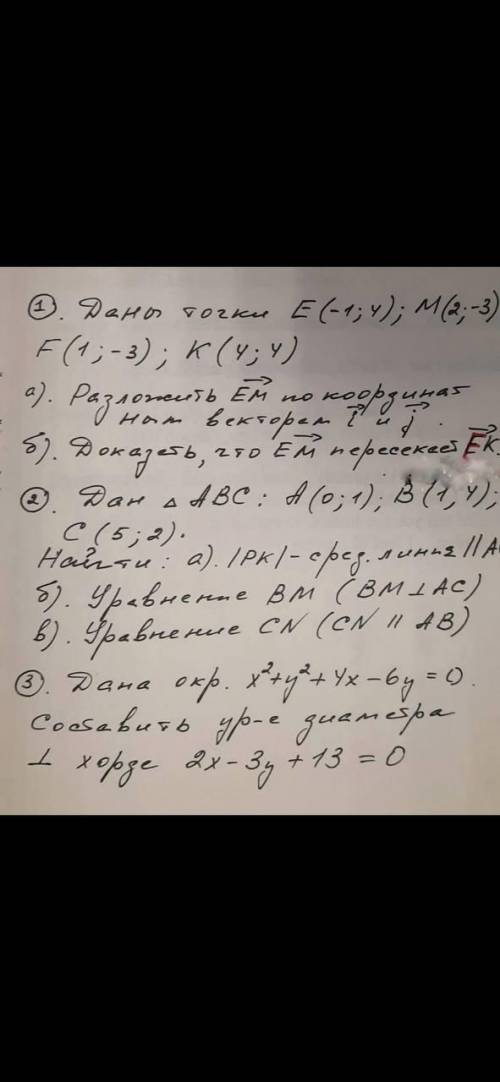 ①. Даны точки E(-1; 4); M(2; -3)
F(1; -3); K(4; 4)
а). Разложить EM по координат
ным векторам i и j.
б). Доказать, что EM пересекает EK.
②. Дан △ABC: A(0; 1); B(1, 4);
C(5; 2).
Найти: а). |PK| - сред. линия || A
б). Уравнение BM (BM ⊥ AC)
в). Уравнение CN (CN || AB)
③. Дана окр. x²+y²+4x-6y=0.
Составить ур-е диаметра
⊥ хорде 2x-3y+13=0